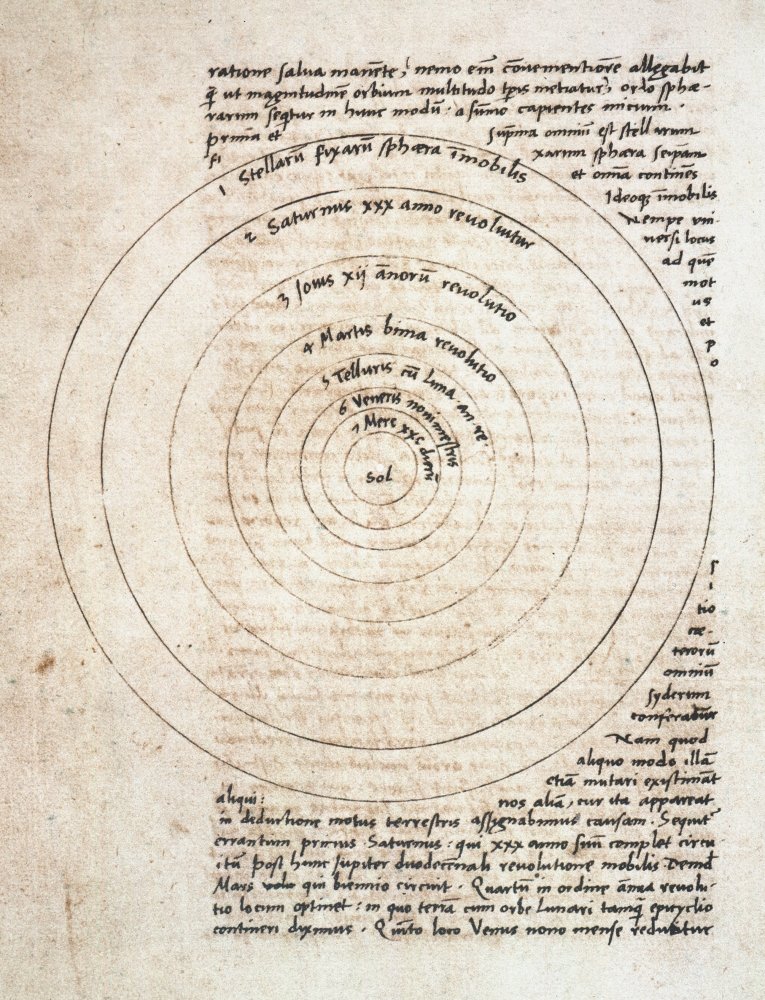 ratione salva manēte, nemo em̄ cōvenientiorē allegabit
q̄ ut magnitudinē orbium multitudo tp̄is metiatur, ordo sphæ-
rarum seqūtur in hunc modū · a sūmo capientes initium ·
Prima et sup̄ma omniū est stellarum
fixarum sphæra seipsam
et omīa continēs
Ideoqȝ īmobilis
Nempe uni-
versi locus
ad quē
mot
us
et
p
o
1 Stellarū fixarū sphæra īmobilis
2 Saturnus xxx anno revoluitur
3 Iovis xij ānorū revolutio
4 Martis bima revolutio
5 Telluris cū Luna an re
6 Veneris nonimestris
7 Merc xxc dierū
Sol
s
i
tio
cæ-
terorū
omniū
syderum
conferatur
Nam quod
aliquo modo illā
etiā mutari existimāt
aliqui: nos aliā, cur ita appareat
in deductione motus terrestris assignabimus causam · Sequit
errantium primus Saturnus: qui xxx anno suū complet circu
itū Post hunc Iupiter duodecēnali revolutione mobilis Deind
Mars qui biennio circuit · Quartū in ordine ānua revolu-
tio locum optinet: in quo terrā cum orbe Lunari tamq̄ epicyclio
contineri diximus · Quīto loco Venus nono mense reducitur